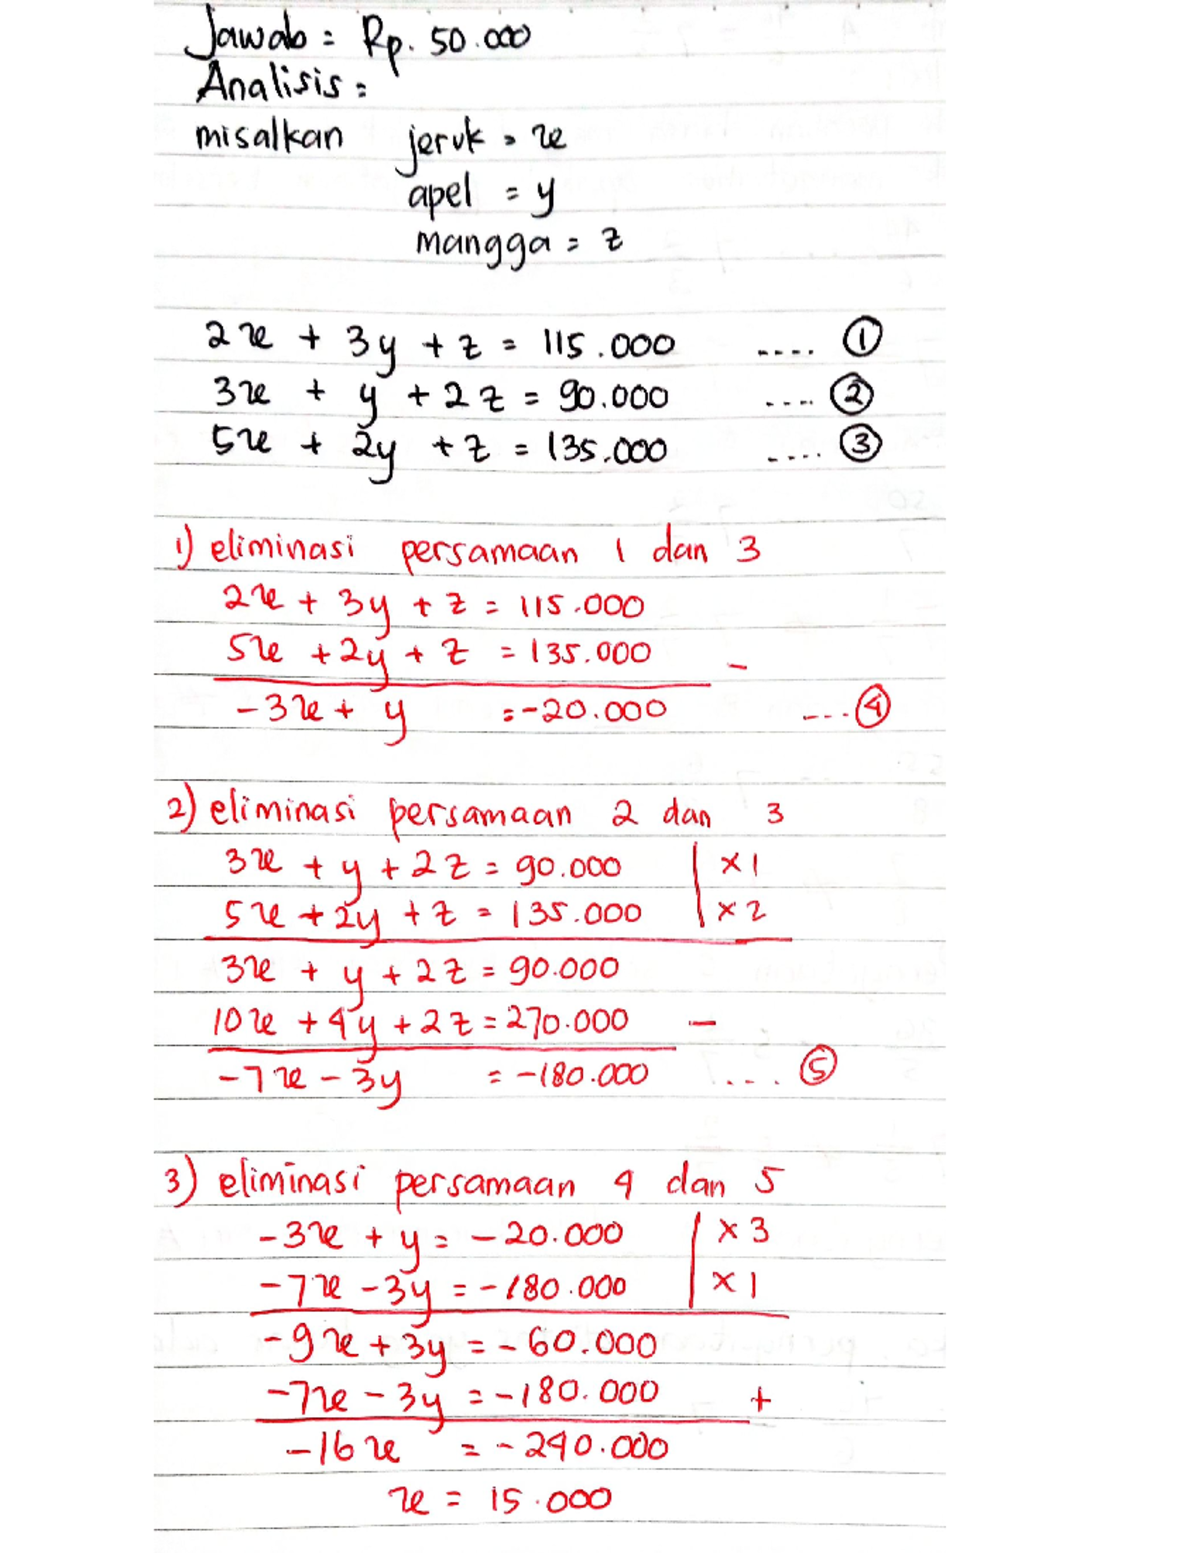 Jawab = Rp. 50.000
Analisis =
misalkan jeruk = x
apel = y
mangga = z
2x + 3y + z = 115.000 .... ①
3x + y + 2z = 90.000 .... ②
5x + 2y + z = 135.000 .... ③
1) eliminasi persamaan 1 dan 3
2x + 3y + z = 115.000
5x + 2y + z = 135.000 -
-3x + y = -20.000 ... ④
2) eliminasi persamaan 2 dan 3
3x + y + 2z = 90.000 | x 1
5x + 2y + z = 135.000 | x 2
3x + y + 2z = 90.000
10x + 4y + 2z = 270.000 -
-7x - 3y = -180.000 .... ⑤
3) eliminasi persamaan 4 dan 5
-3x + y = -20.000 | x 3
-7x - 3y = -180.000 | x 1
-9x + 3y = -60.000
-7x - 3y = -180.000 +
-16x = -240.000
x = 15.000